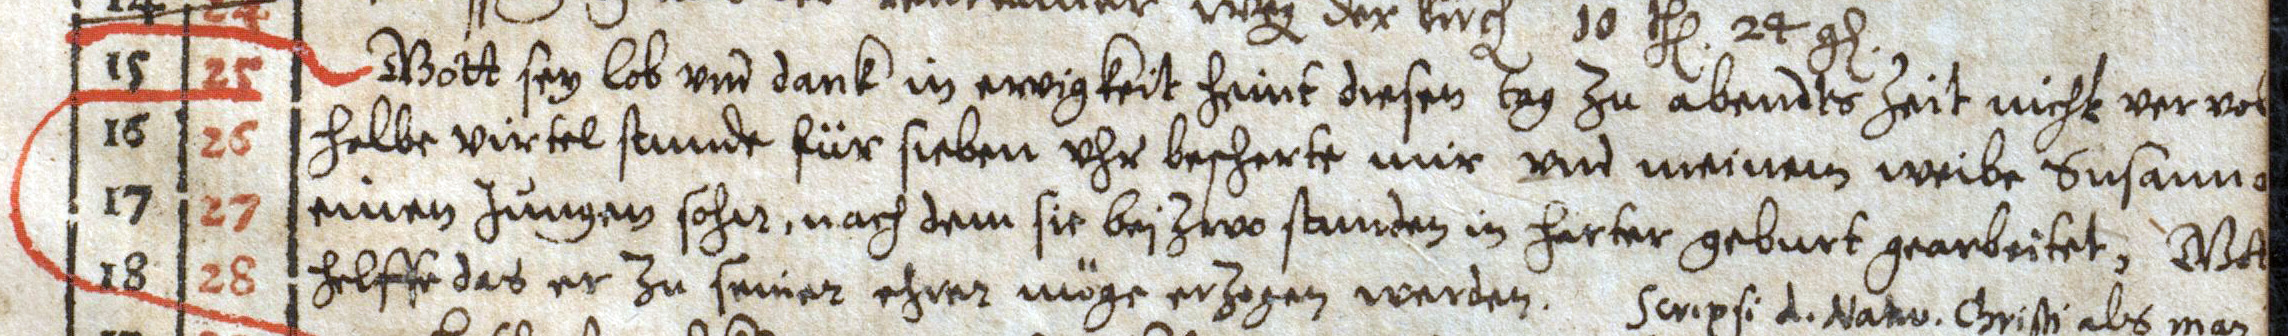 14 24 der kirch 10 24
15 25 Gott sey lob vnd dank in ewigkeit heint diesen tag zu abendts zeit nicht
16 26 halbe virtel stunde für sieben vhr bescherte mir vnd meinem weibe Susanna
17 27 einen Jungen sohn, nach dem sie bej zwo stunden in harter geburt gearbeitet, Gott
18 28 helffe das er zu seinen ehren möge erzogen werden. Scripsi d. Nativ. Christi als man